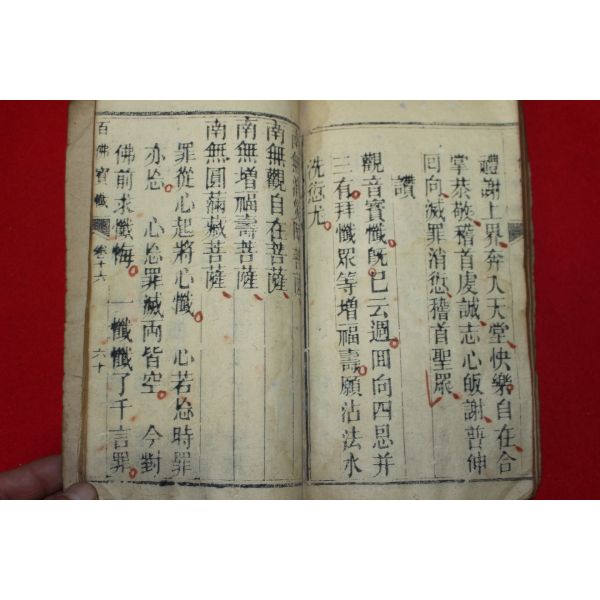 禮謝上界奔入天堂快樂自在合
掌恭敬稽首虔誠志心皈謝普伸
回向滅罪消愆稽首聖眾
讚
觀音寶懺旣已云週回向四恩并
三有拜懺眾等增福壽願沾法水
洗愆尤
南無消災障菩薩
南無觀自在菩薩
南無增福壽菩薩
南無圓滿藏菩薩
罪從心起將心懺 心若忘時罪
亦忘 心忘罪滅両皆空 今對
佛前求懺悔 一懺懺了千言罪
百佛寶懺 卷十六 六十